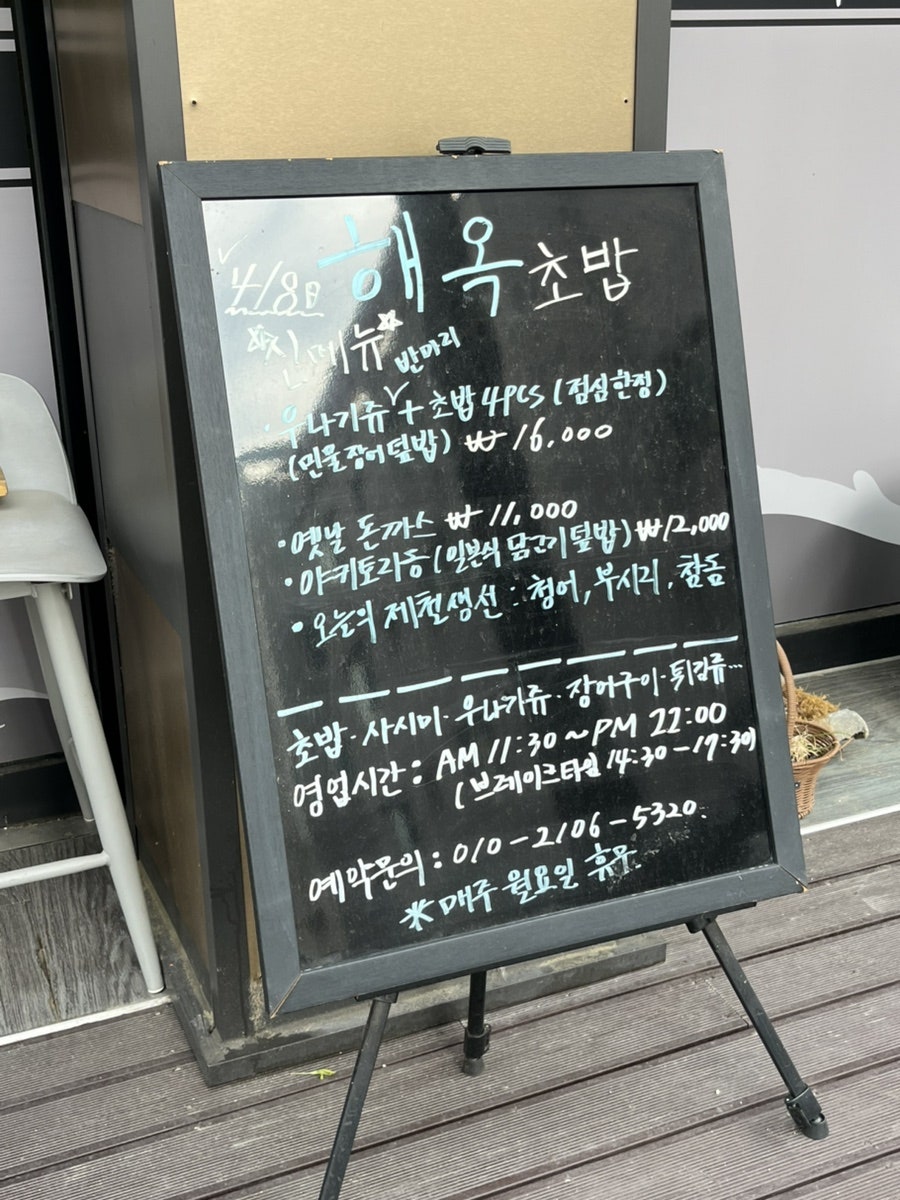 4/8日 해옥 초밥
신메뉴
반마리
· 우나기쥬 + 초밥 4pcs (점심한정)
(민물장어덮밥) ₩ 16,000
· 옛날 돈까스 ₩ 11,000
· 야키토리동 (일본식 닭고기덮밥) ₩12,000
· 오늘의 제철생선 : 청어, 부시리, 참돔
초밥 · 사시미 · 우나기쥬 · 장어구이 · 튀김류...
영업시간 : AM 11:30 ~ PM 22:00
(브레이크타임 14:30 - 17:30)
예약문의 : 010 - 2106 - 5320.
* 매주 월요일 휴무.